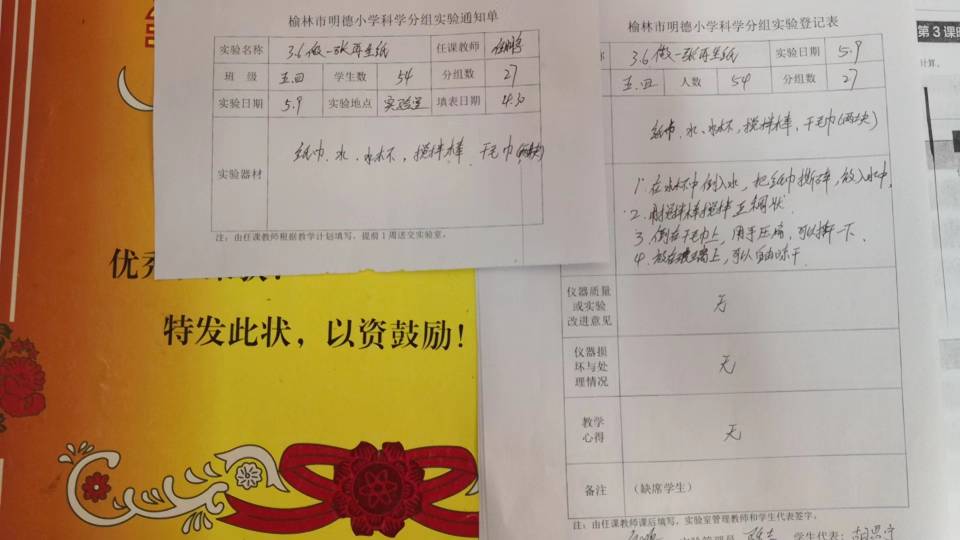 榆林市明德小学科学分组实验通知单
实验名称 3.6做一张再生纸 任课教师
班 级 五.四 学生数 54 分组数 27
实验日期 5.9 实验地点 实验室 填表日期 4.30
实验器材 纸巾、水、水杯,搅拌棒、干毛巾(两块)
注:由任课教师根据教学计划填写,提前1周送交实验室。
榆林市明德小学科学分组实验登记表
3.6做一张再生纸 实验日期 5.9
五.四 人数 54 分组数 27
纸巾、水、水杯,搅拌棒、干毛巾(两块)
1. 在水杯中倒入水,把纸巾撕碎,放入水中,
2. 用搅拌棒搅拌至糊状
3. 倒在干毛巾上,用手压扁,可以擀一下
4. 放在玻璃上,可以自由晾干
仪器质量
或实验
改进意见
无
仪器损
坏与处
理情况
无
教学
心得
无
备注 (缺席学生)
注:由任课教师课后填写,实验室管理教师和学生代表签字。
学生代表:
第3课时
计算。
特发此状,以资鼓励!